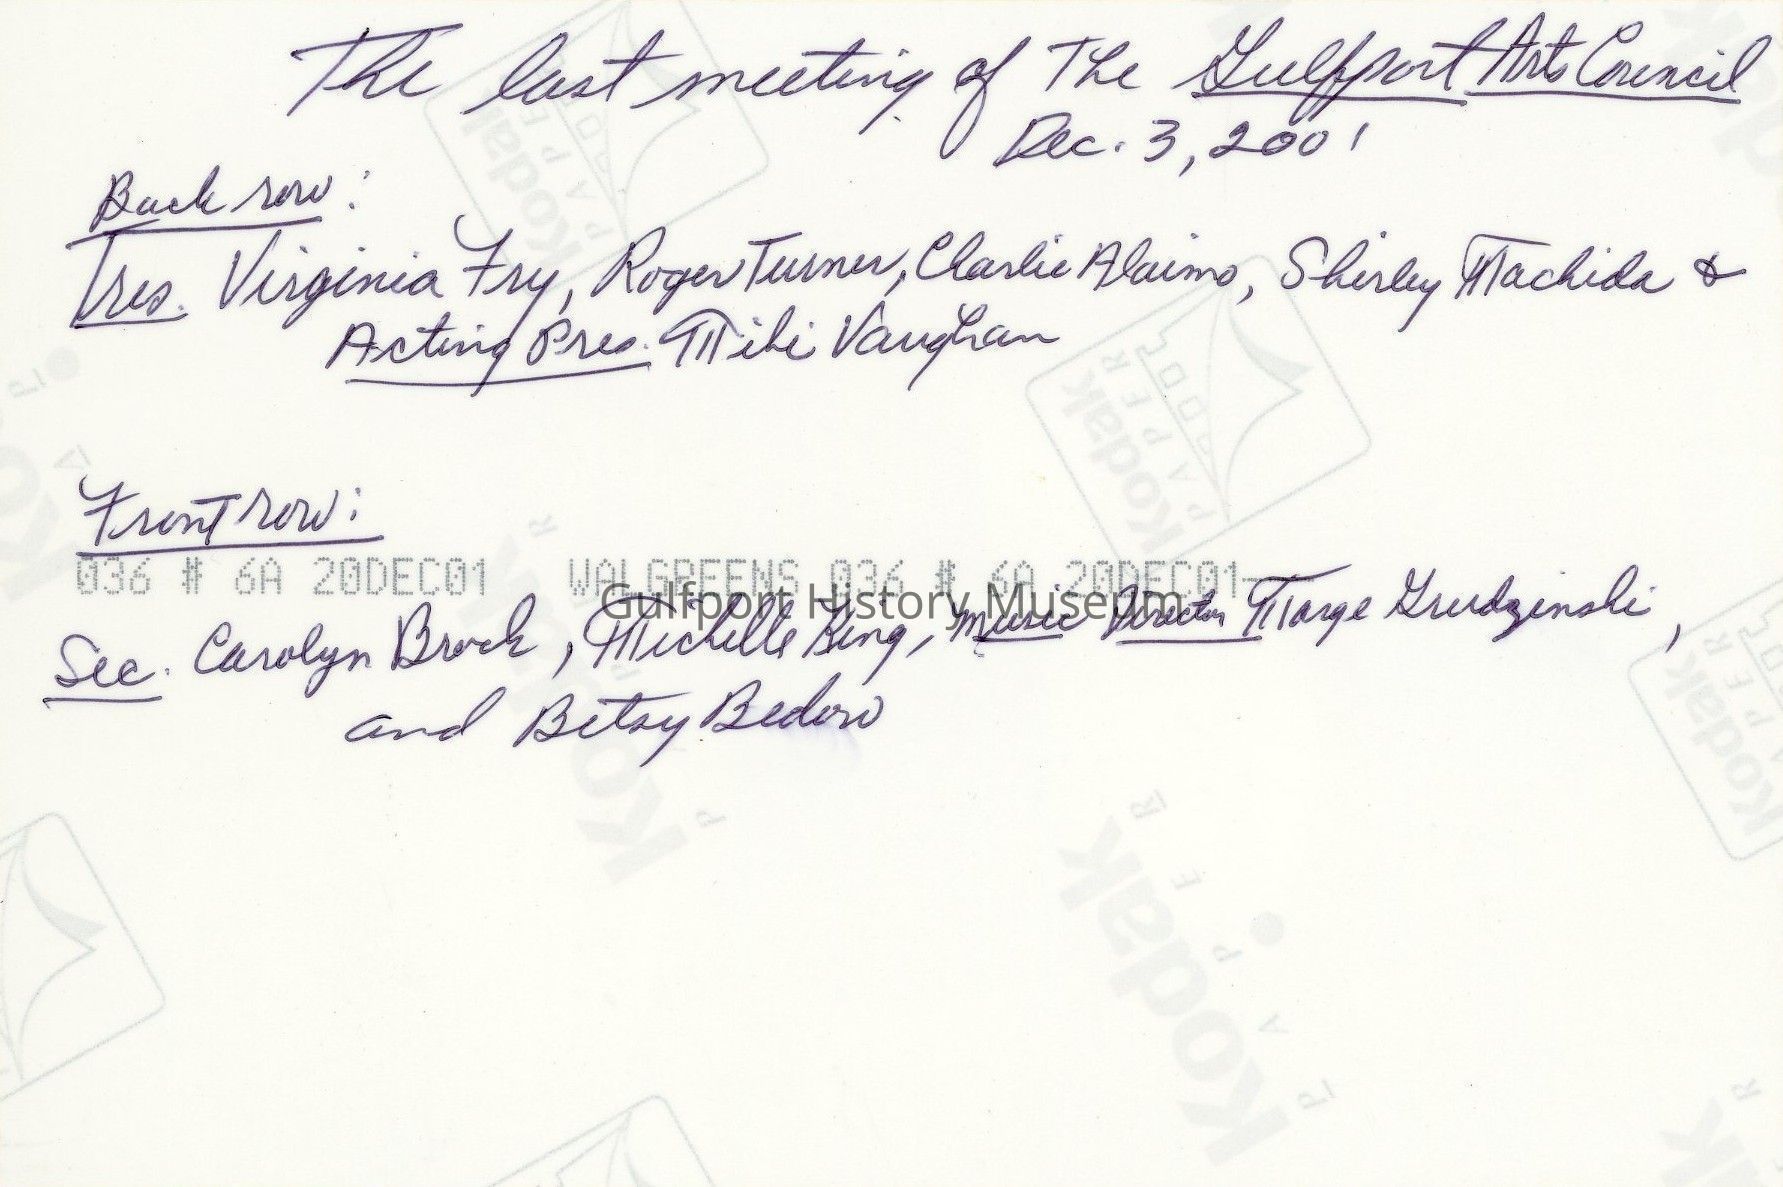 The last meeting of The Gulfport Arts Council
Dec. 3, 2001
Back row:
Tres. Virginia Fry, Roger Turner, Charlie Alaimo, Shirley Machida &
Acting Pres. Miki Vaughan
Front row:
036 # 6A 20DEC01 WALGREENS 036 # 6A 20DEC01
Gulfport History Museum
Sec. Carolyn Brock, Michelle King, Music Director Marge Grudzinski,
and Betsy Bedow
Kodak
PAPER
Kodak
PAPER
Kodak
PAPER
Kodak
Kodak
PAPER